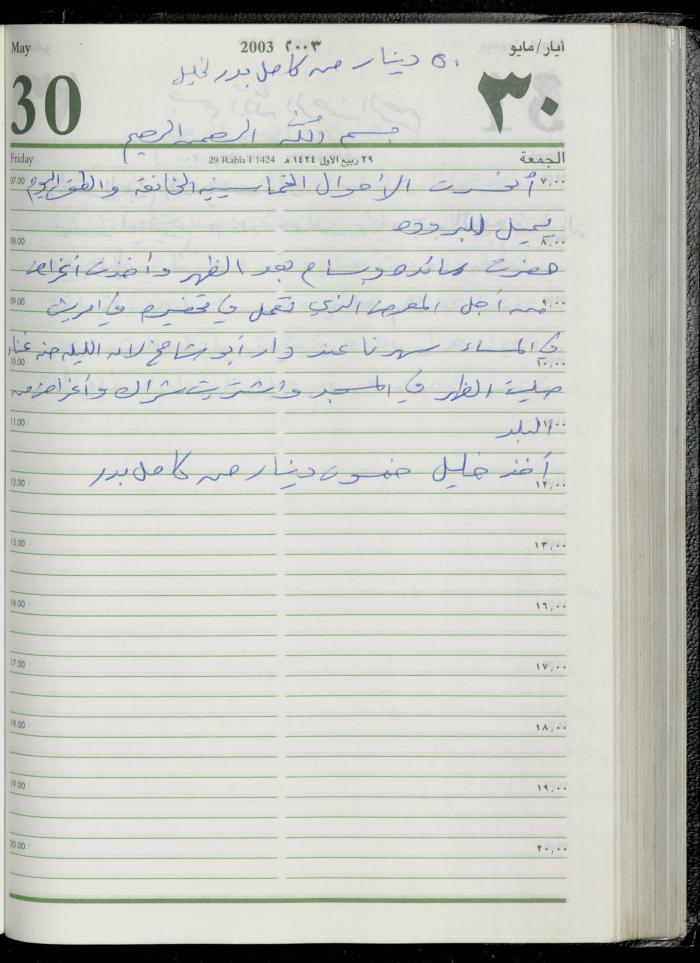 May 2003 ٢٠٠٣ أيار/مايو
٥٠ دينار من كامل بدر لخليل
30 ٣٠
بسم الله الرحمن الرحيم
Friday 29 Rabia I 1424 ٢٩ ربيع الأول ١٤٢٤ هـ الجمعة
07.00 ٧,٠٠
أنحسرت الأحوال الخماسينيه الخانقة والطقس اليوم
يميل للبروده
08.00 ٨,٠٠
حضرت عائده وبسام بعد الظهر وأخذت أغراض
09.00 ٩,٠٠
من أجل المعرض الذي تعمل في تحضيره في
في المساء سهرنا عند دار أبو شامخ لأن الليله
10.00 ١٠,٠٠
صليت الظهر في المسجد واشتريت شراك وأغراض من
11.00 ١١,٠٠
البلد
أخذ خليل خمسون دينار من كامل بدر
12.00 ١٢,٠٠
13.00 ١٣,٠٠
16.00 ١٦,٠٠
17.00 ١٧,٠٠
18.00 ١٨,٠٠
19.00 ١٩,٠٠
20.00 ٢٠,٠٠